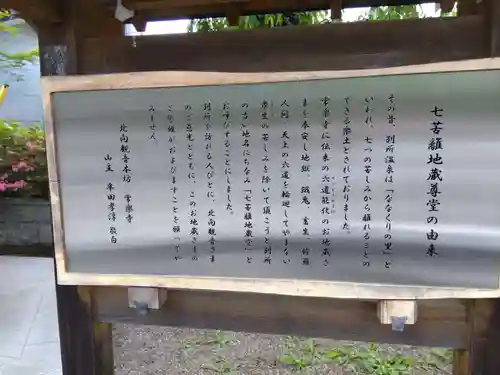 七苦離地蔵尊堂の由来
その昔、別所温泉は「ななくりの里」と
いわれ、七つの苦しみから離れることの
できる楽土とされておりました。
常楽寺に伝来の六道能化のお地蔵さ
まを奉安し地獄、餓鬼、畜生、修羅
人間、天上の六道を輪廻してやまない
衆生の苦しみを除いて頂こうと別所
の古い地名にちなみ「七苦離地蔵堂」と
お呼びすることにしました。
別所を訪れる人びとに、北向観音さま
のご慈光とともに、このお地蔵さまの
ご仏縁がおよびますことを願ってや
みません。
北向観音本坊 常楽寺
山主 半田孝淳 敬白